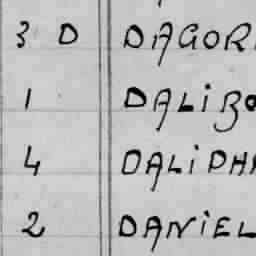 3 D DAGOR
1 DALiBO
4 DALiDHA
2 DANiEL